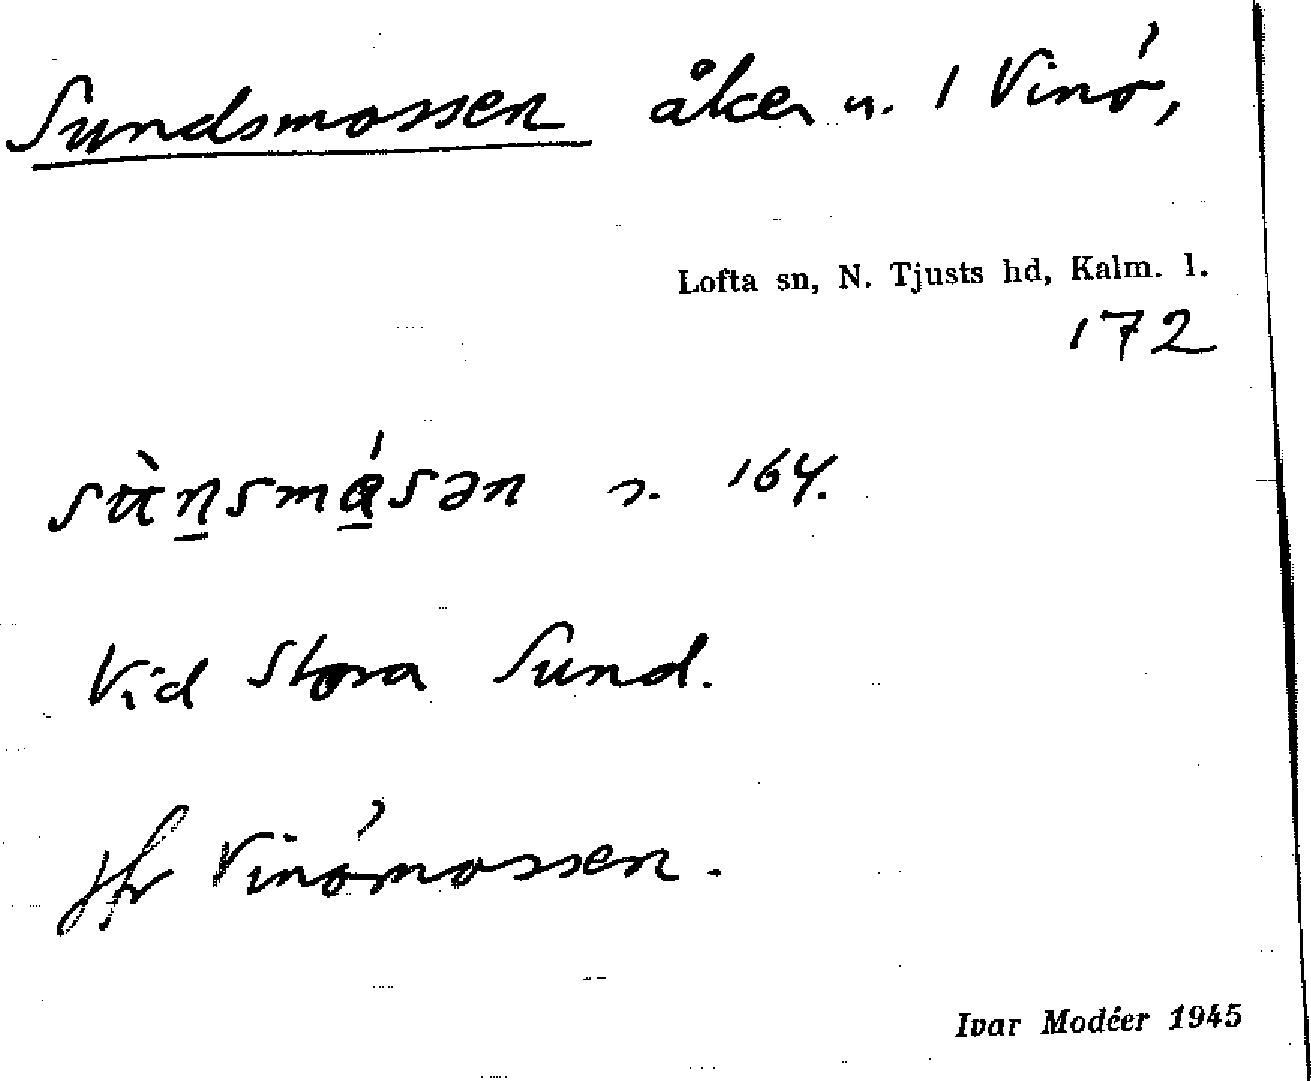 Sundsmossen åker n. 1 Vinö,
Lofta sn, N. Tjusts hd, Kalm. l.
172
sùnsmásən s. 164.
Vid Stora Sund.
Jfr Vinömossen.
Ivar Modéer 1945